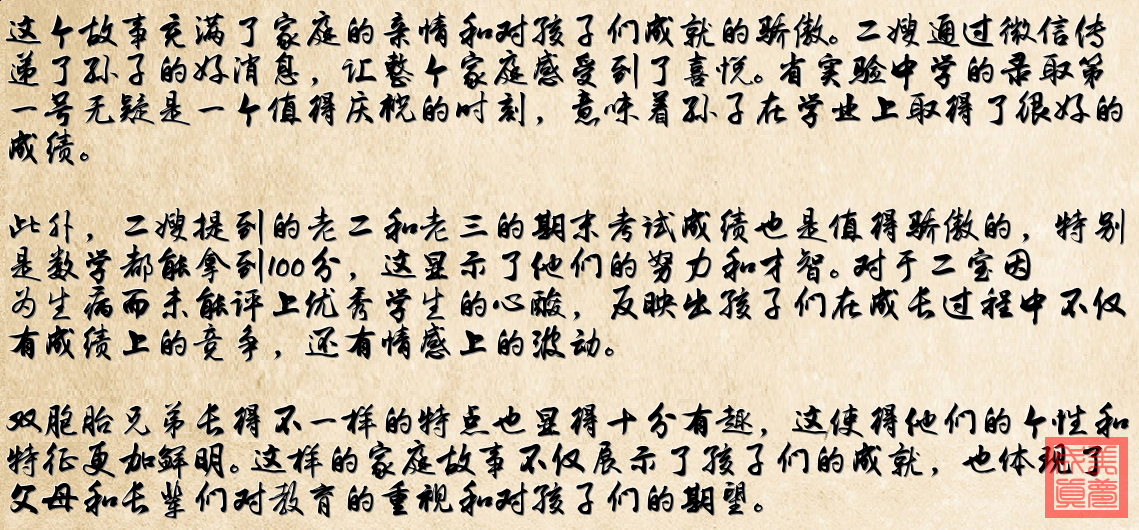 这个故事充满了家庭的亲情和对孩子们成就的骄傲。二嫂通过微信传
递了孙子的好消息，让整个家庭感受到了喜悦。省实验中学的录取第
一号无疑是一个值得庆祝的时刻，意味着孙子在学业上取得了很好的
成绩。
此外，二嫂提到的老二和老三的期末考试成绩也是值得骄傲的，特别
是数学都能拿到100分，这显示了他们的努力和才智。对于二宝因
为生病而未能评上优秀学生的心酸，反映出孩子们在成长过程中不仅
有成绩上的竞争，还有情感上的波动。
双胞胎兄弟长得不一样的特点也显得十分有趣，这使得他们的个性和
特征更加鲜明。这样的家庭故事不仅展示了孩子们的成就，也体现了
父母和长辈们对教育的重视和对孩子们的期望。